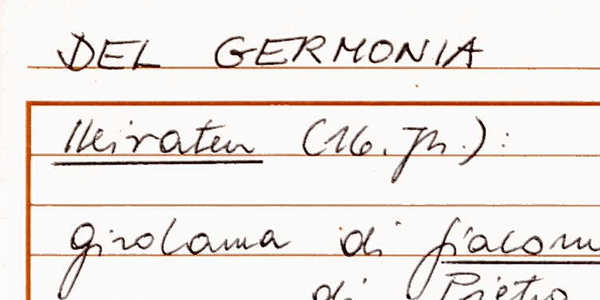 DEL GERMONIA
Heiraten (16. Jh.):
Girolama di Giacom
di Pietro